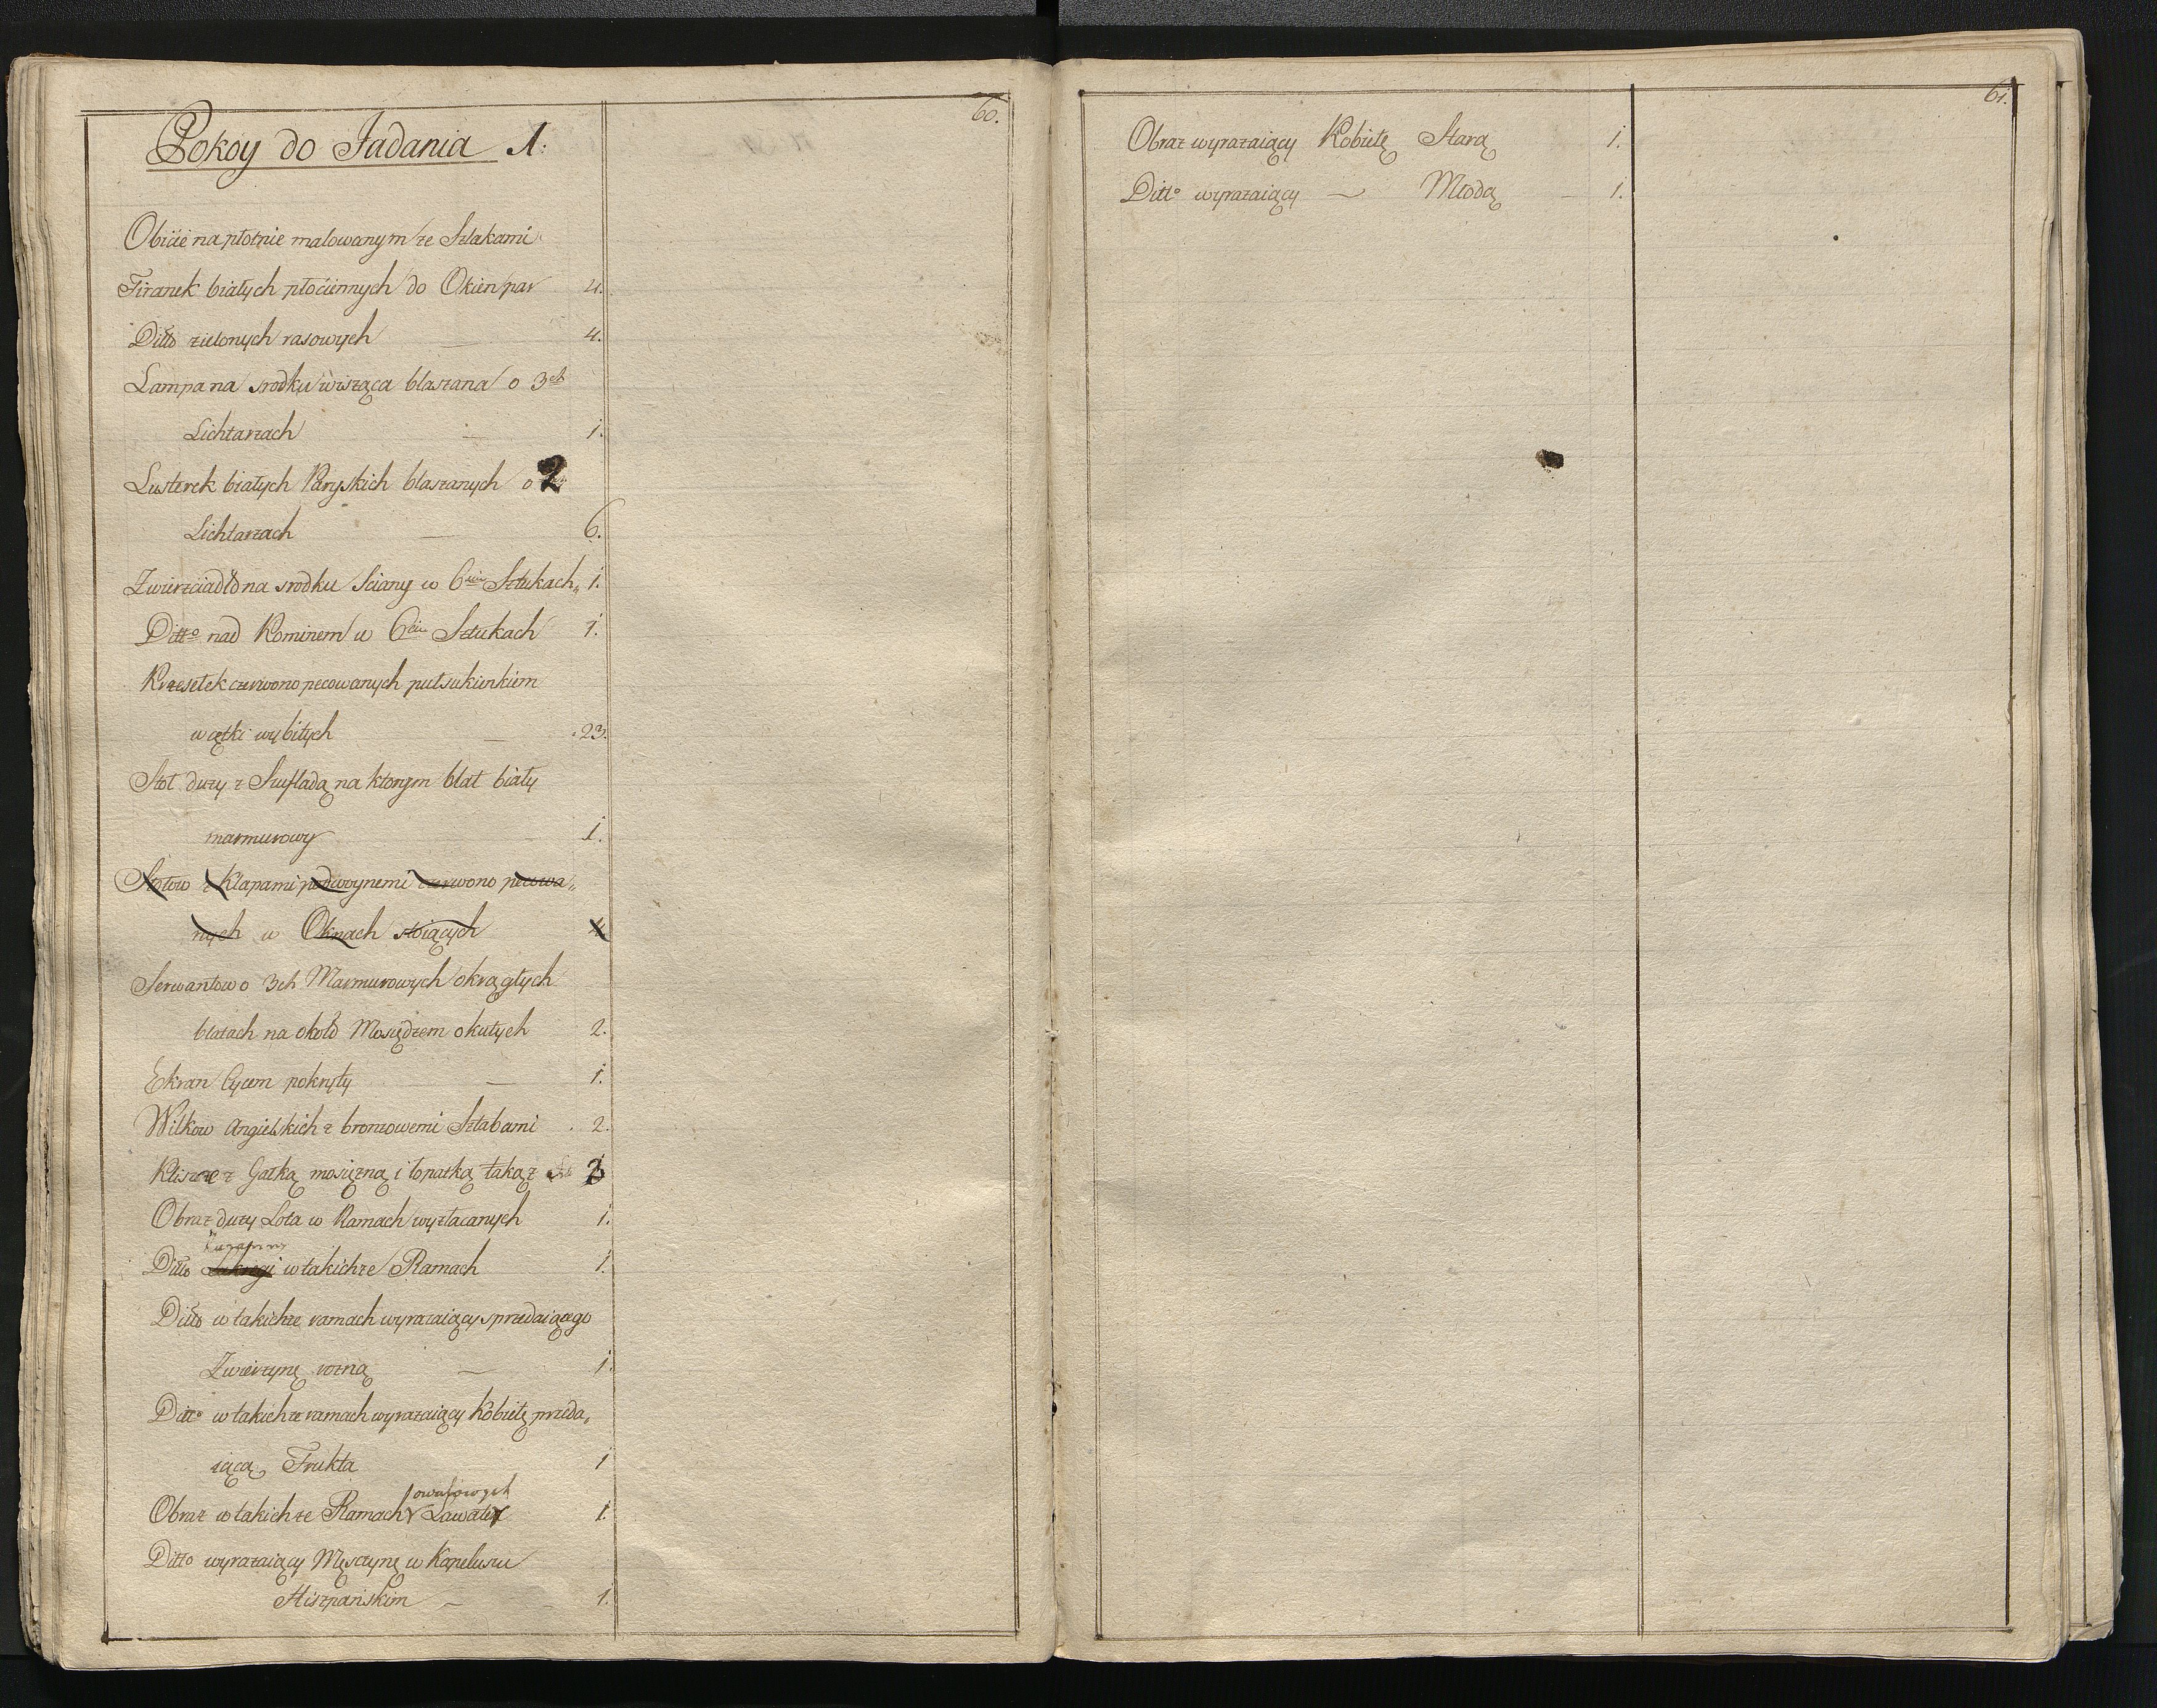 60.
Pokoy do Jadania 1.
Obicie na płotnie malowanym ze Szlakami
Firanek białych płóciennych do Okien par 4.
Ditto zielonych rasowych — 4.
Lampa na srodku wisząca blaszana o 3ch
Lichtarzach — 1.
Lusterek białych Paryskich blaszanych o 2
Lichtarzach — 6.
Zwierciadło na srodku Sciany w 6ciu Sztukach „ 1.
Ditto nad Kominem w 6ciu Sztukach 1.
Krzesełek czerwono pecowanych pułsukienkiem
w cętki wybitych — 23.
Stoł duży z Szufladą na ktorym blat biały
marmurowy 1.
Stołow z Klapami podwoynemi czerwono pecowa„
nych w Oknach stoiących 4
Serwantow o 3ch Marmurowych okrągłych
blatach na około Mosiędzem okutych 2.
Ekran Cycem pokryty — 1.
Wilkow Angielskich z bronzowemi Sztabami . 2.
Kliszcze z Gałką mosiężną i łopatką takąż 2
Obraz duży Lota w Ramach wyzłacanych 1.
Ditto w takichże Ramach 1.
Ditto w takichże ramach wyrażaiący sprzedaiącego
Zwierzynę rożną — 1.
Ditto w takichże ramach wyrażaiący Kobietę przeda„
iącą Frukta 1
owalowych
Obraz w takichże Ramach Lawater 1.
Ditto wyrażaiący Męsczynę w Kapeluszu
Hiszpańskim — 1.
61.
Obraz wyrażaiący Kobietę Starą 1.
Ditto wyrażaiący — Młodą — 1.